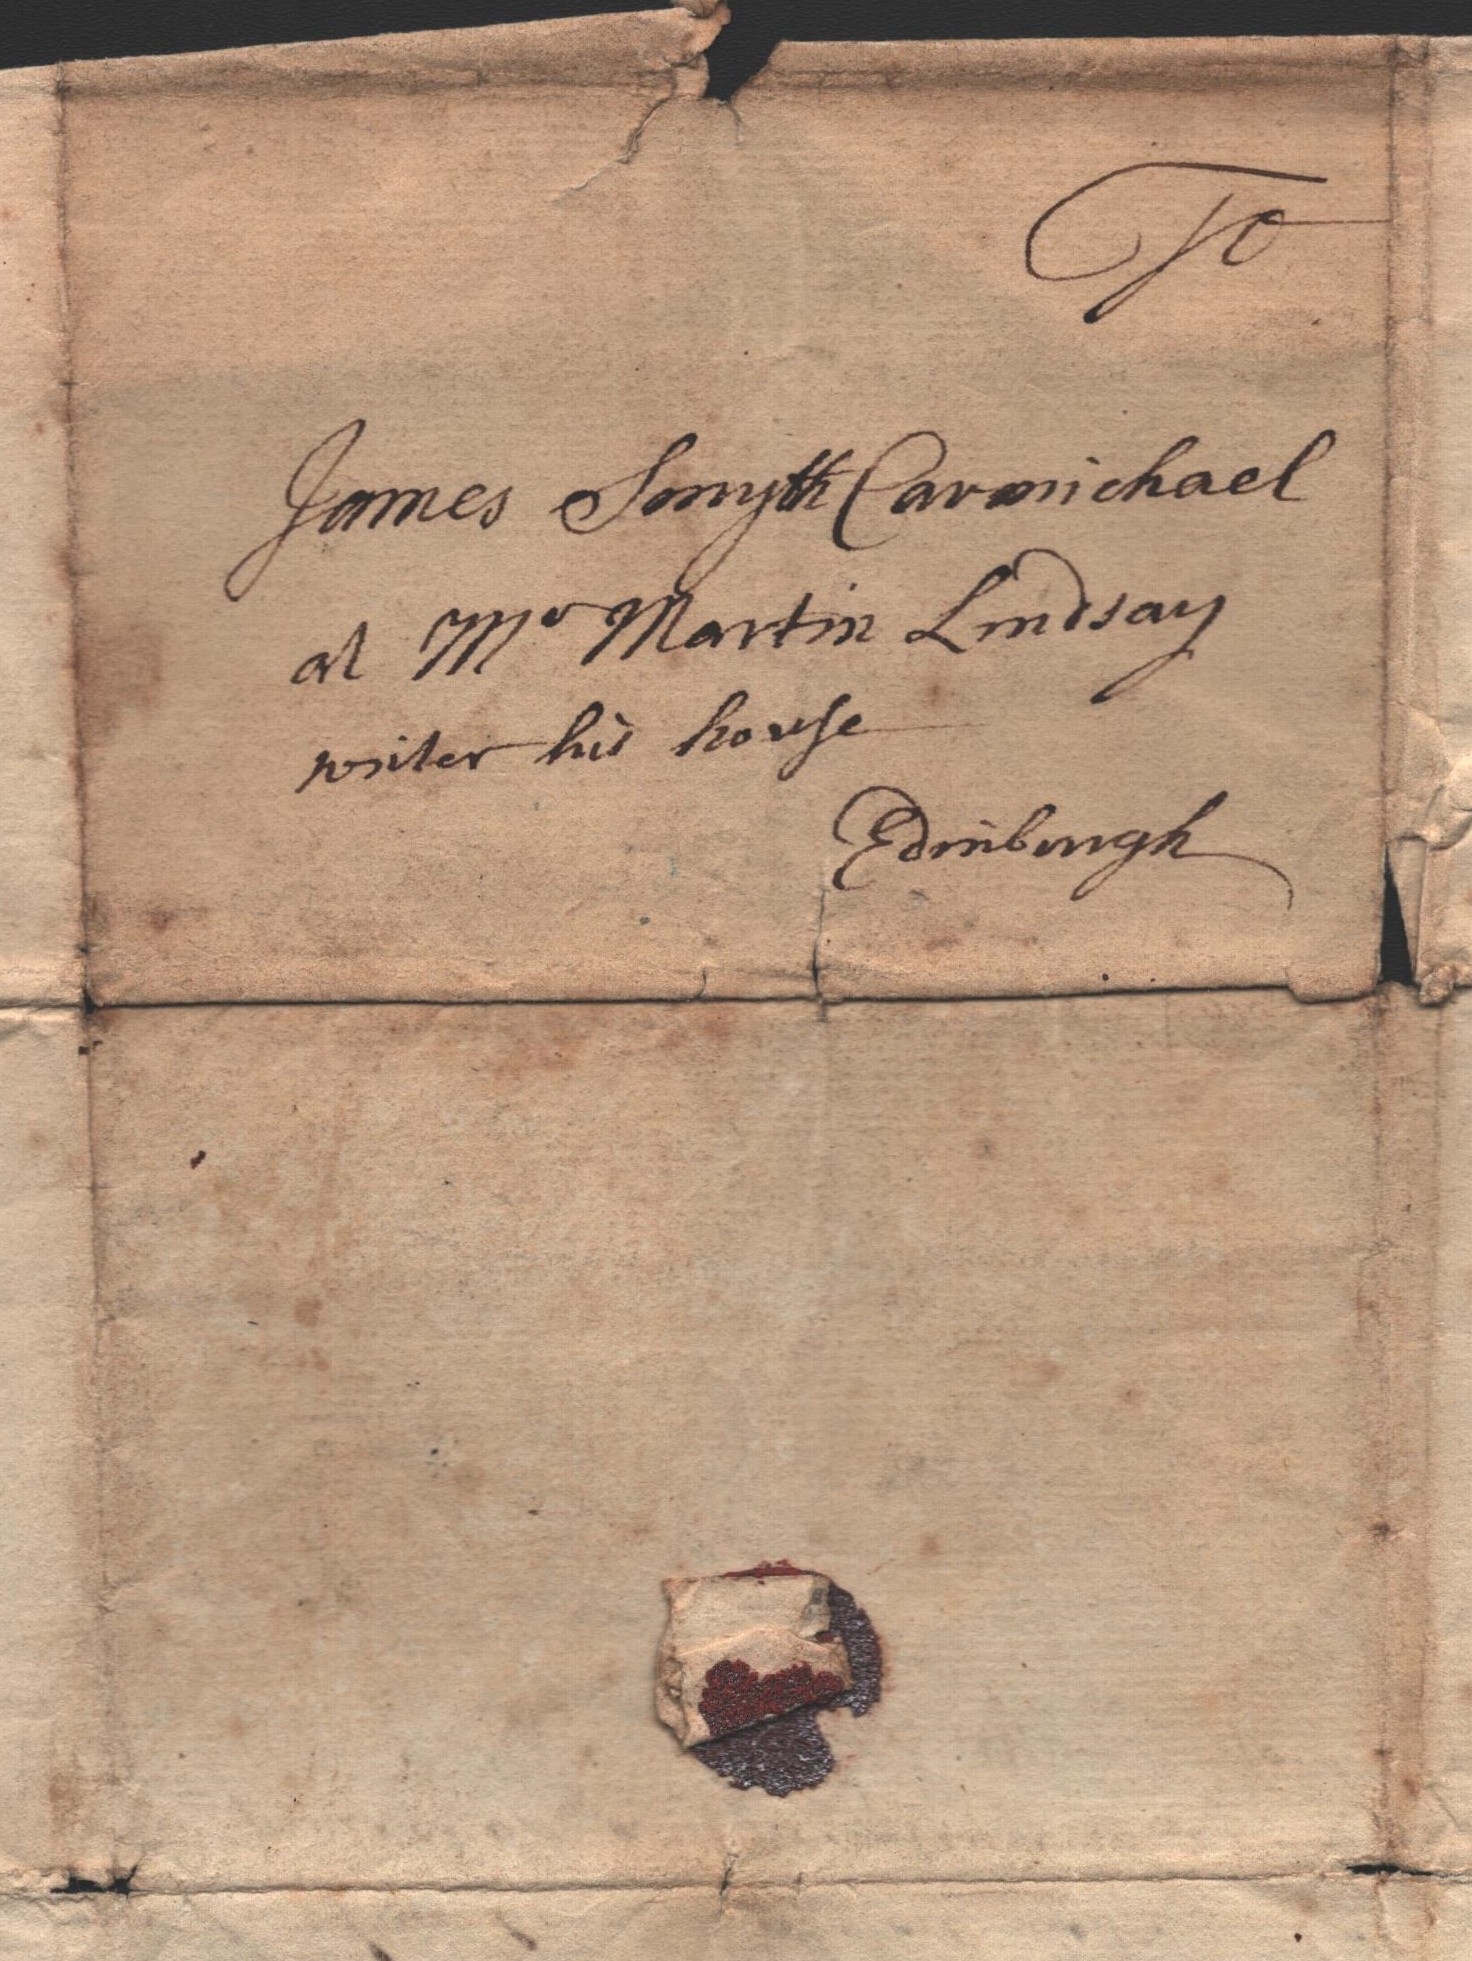 To
James Smyth Carmichael
at Mr Martin Lindsay
writer his house
Edinburgh